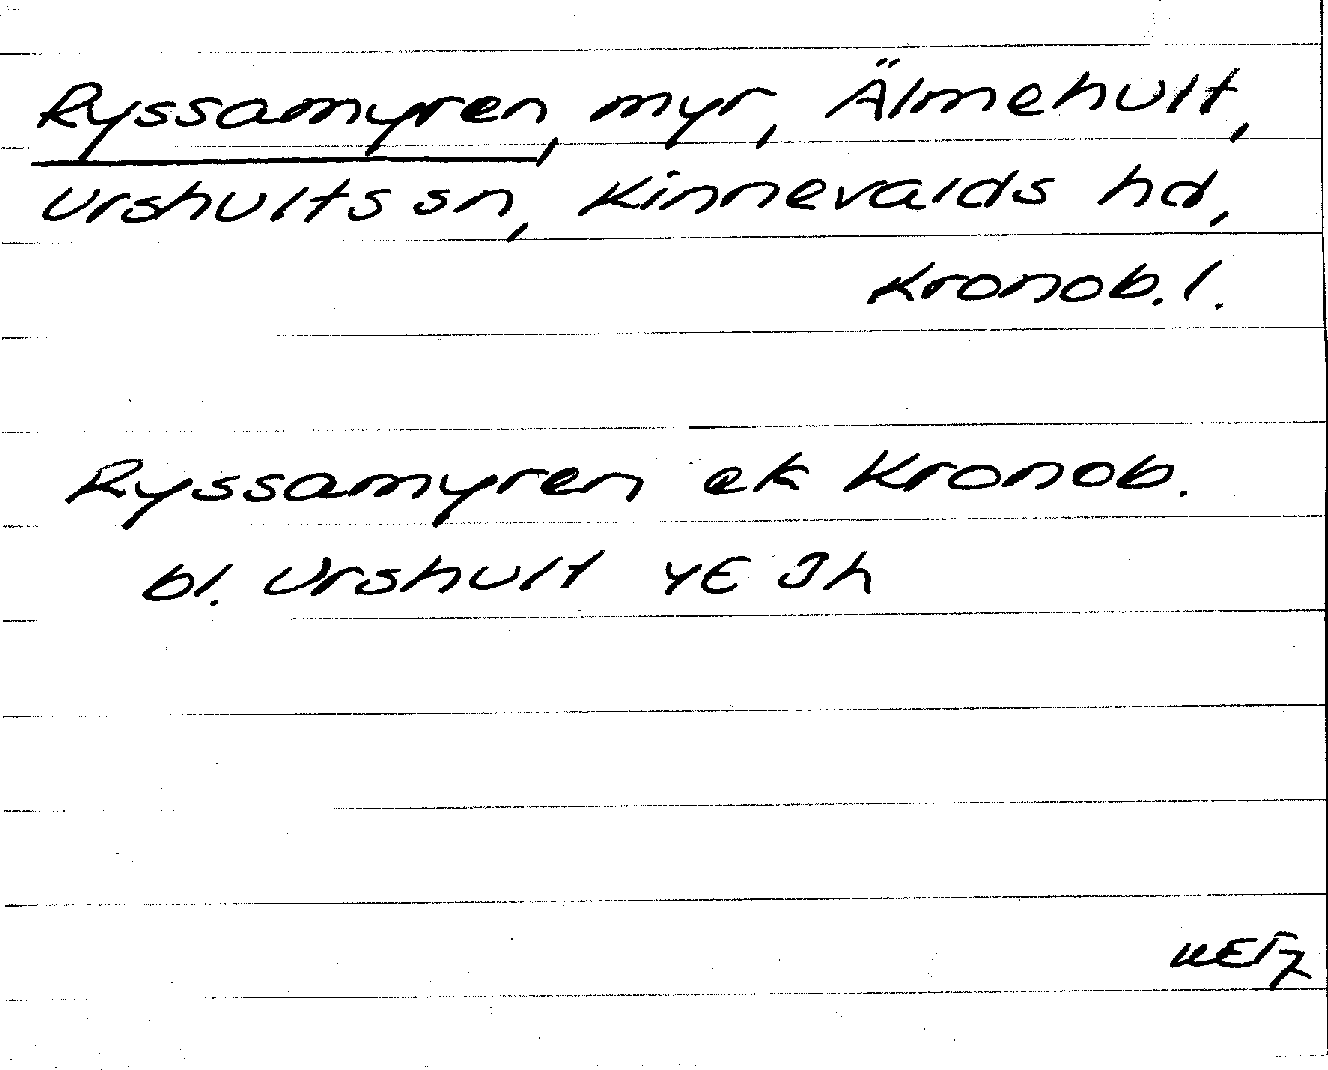 Ryssamyren, myr, Älmehult,
Urshults sn, Kinnevalds hd,
Kronob. l.
Ryssamyren ek Kronob.
bl. Urshult 4E Jh